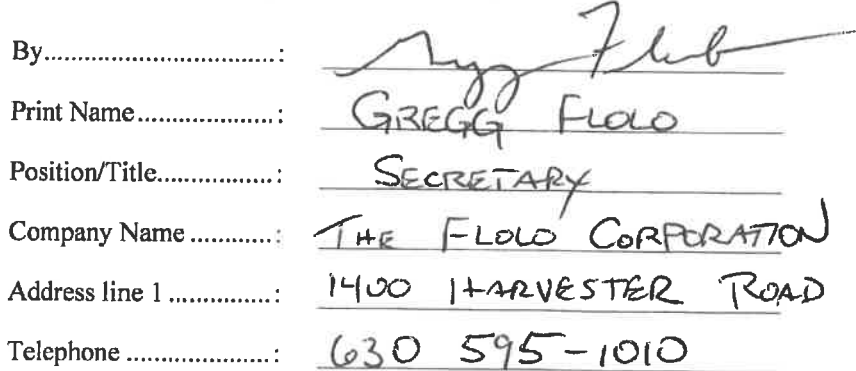 By..............................:
Print Name.....................: GREGG FLOLO
Position/Title.................: SECRETARY
Company Name ............: THE FLOLO CORPORATION
Address line 1 ...............: 1400 HARVESTER ROAD
Telephone .....................: 630 595-1010